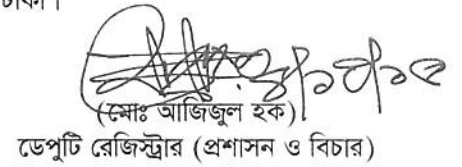 ঢাকা।
(মোঃ আজিজুল হক)
ডেপুটি রেজিস্ট্রার (প্রশাসন ও বিচার)